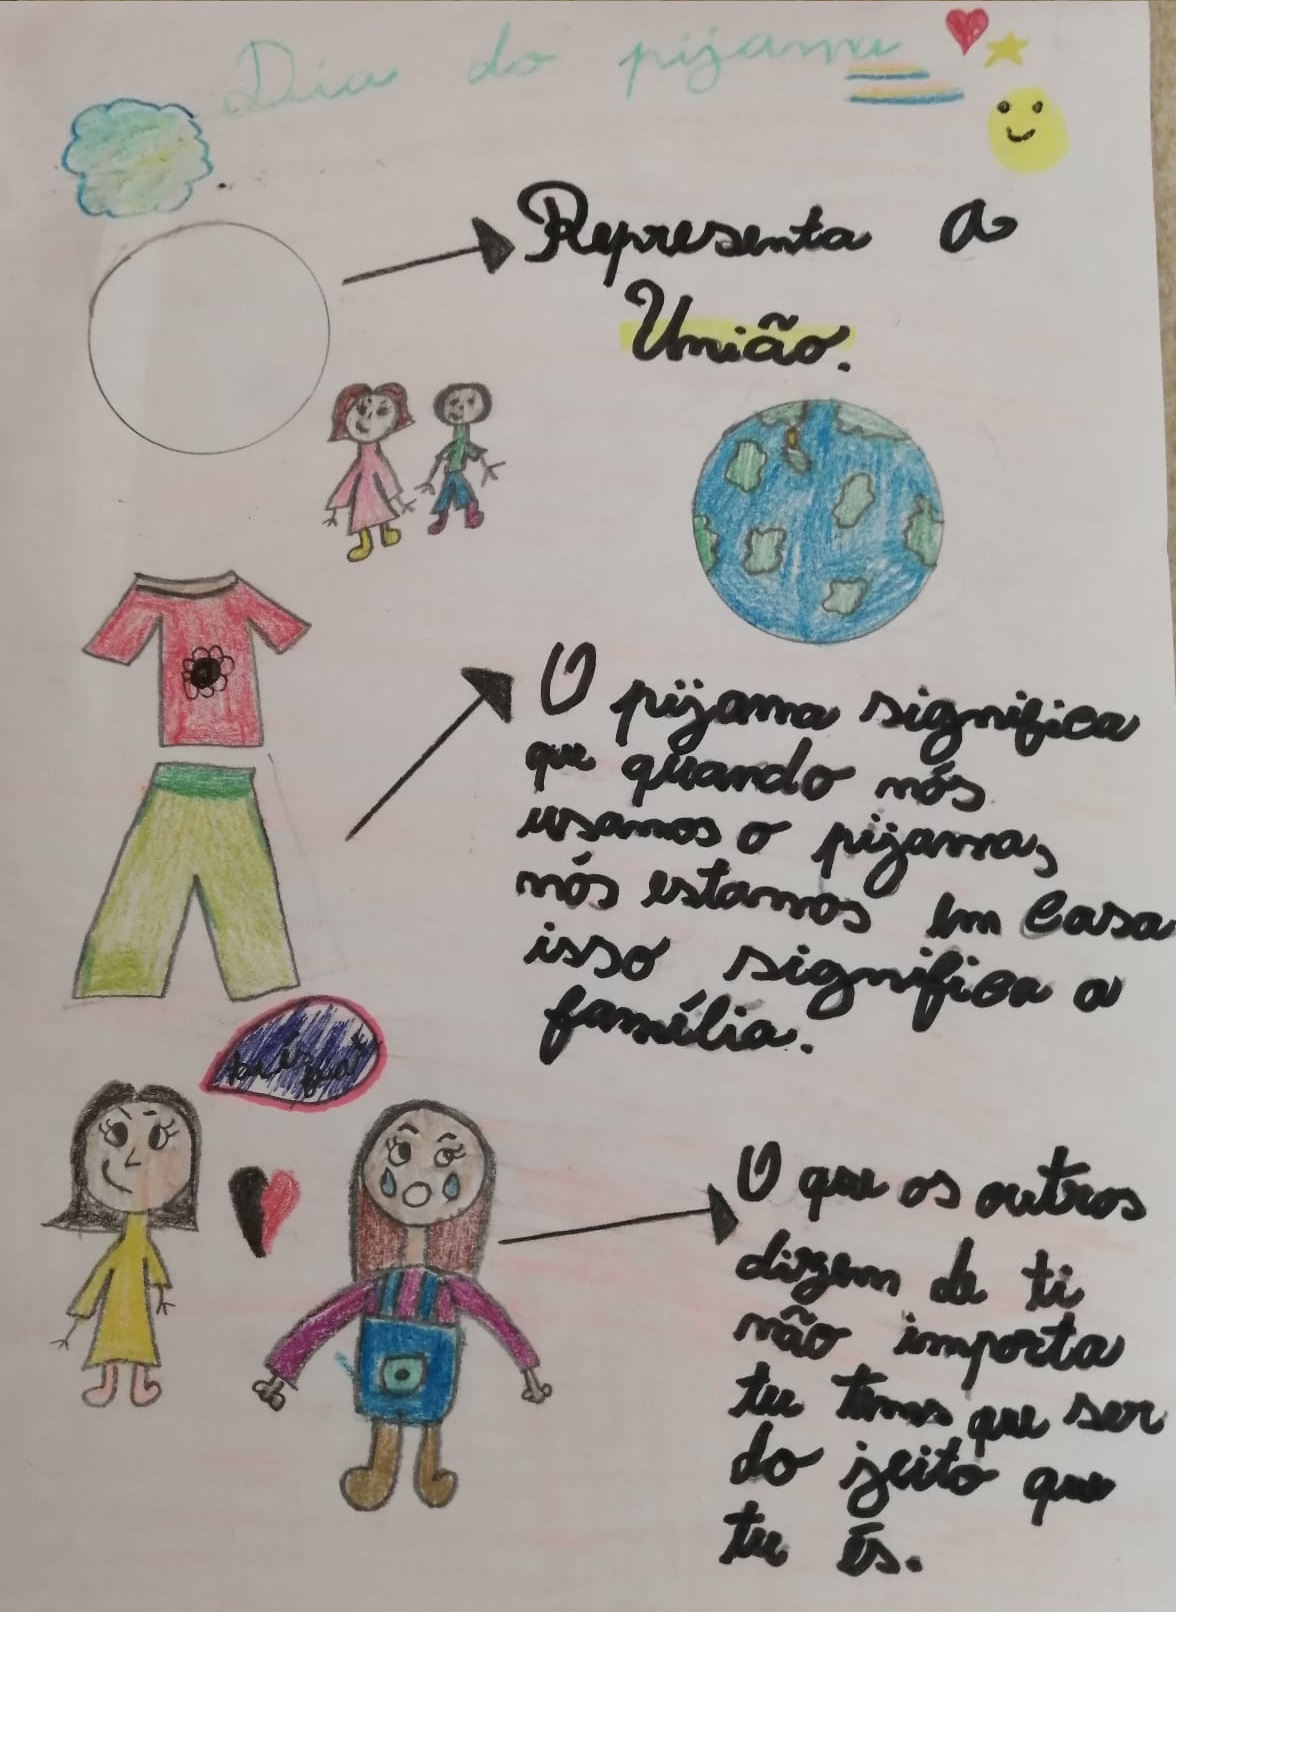 Dia do pijama
Representa a
União.
O pijama significa
que quando nós
usamos o pijama,
nós estamos em casa
isso significa a
família.
tu és feia
O que os outros
dizem de ti
não importa
tu tens que ser
do jeito que
tu és.